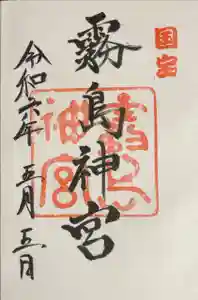 国宝
霧島神宮
霧島神宮
令和六年五月五日